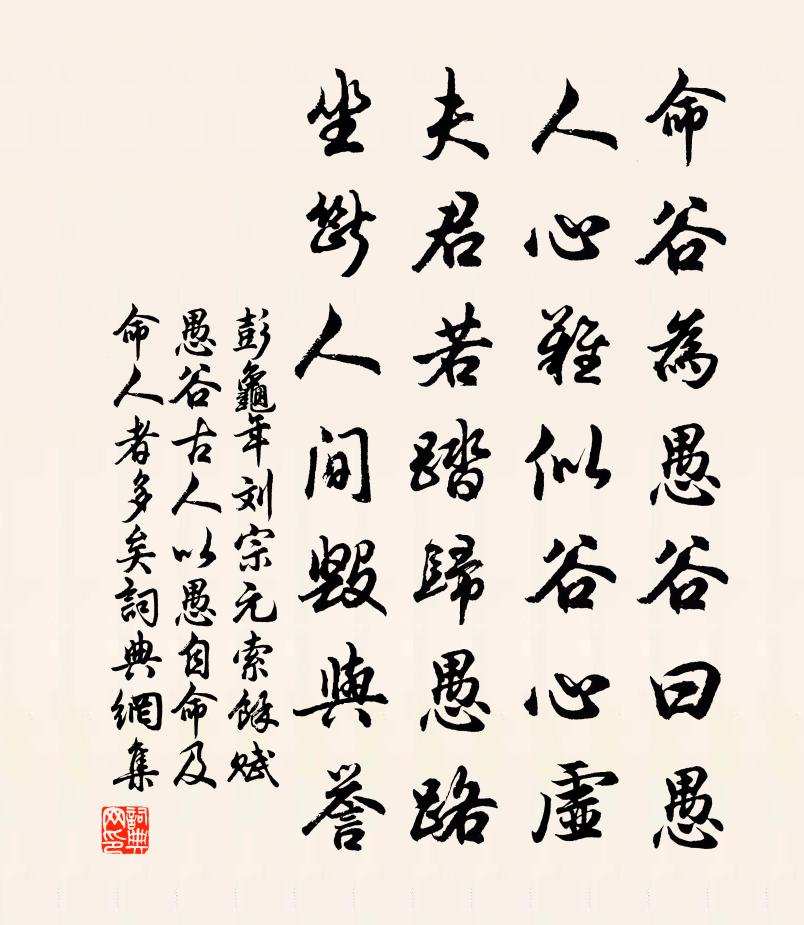 命谷為愚谷曰愚
人心難似谷心虛
夫君若踏歸愚路
坐斷人間毀與誉
彭龜年刘宗元索餘賦
愚谷古人以愚自命及
命人者多矣詞典網集
詞典网印